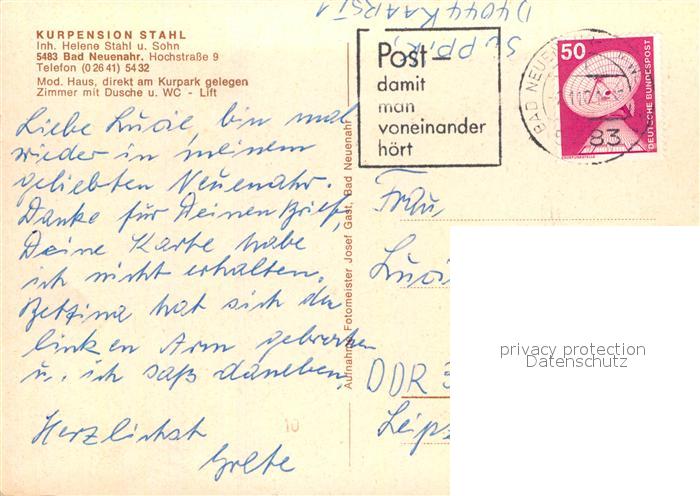 KURPENSION STAHL
Inh. Helene Stahl u. Sohn
5483 Bad Neuenahr, Hochstraße 9
Telefon (0 26 41) 54 32
Mod. Haus, direkt am Kurpark gelegen
Zimmer mit Dusche u. WC - Lift
Liebe Lucie, bin mal
wieder in meinem
geliebten Neuenahr.
Danke für Deinen Brief,
Deine Karte habe
ich nicht erhalten.
Bettina hat sich den
linken Arm gebrochen
u. ich saß daneben.
Herzlichst
Grete
10
Aufnahme Fotomeister Josef Gast, Bad Neuenahr
D 4044 KAARST 1
Post-
damit
man
voneinander
hört
BAD NEUENAHR
83
50
DEUTSCHE BUNDESPOST
Frau
Lucie
DDR
Leipz
privacy protection
Datenschutz